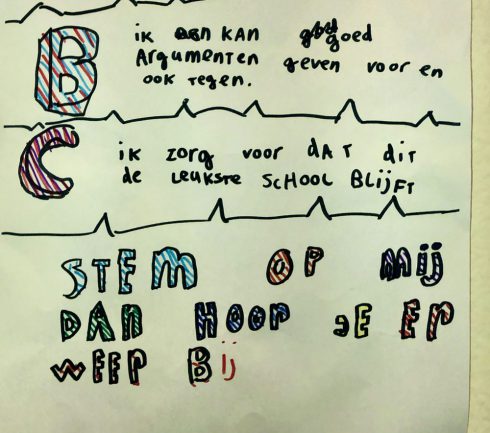 B
ik kan goed
Argumenten geven voor en
ook tegen.
C
ik zorg voor dAT dit
de leukste school blijft
STEM OP Mij
DAN HOOR JE ER
WEER Bij